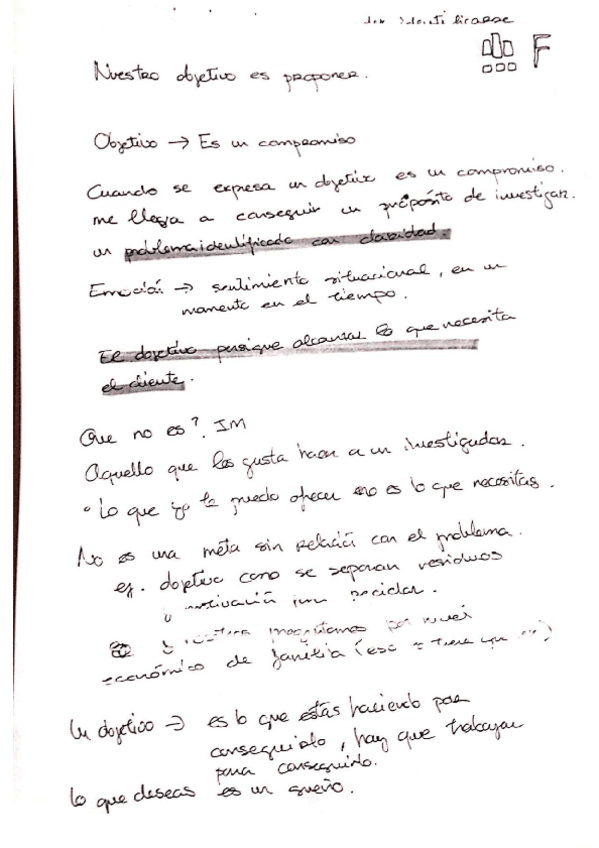 F
Nuestro objetivo es proponer.
Objetivo → Es un compromiso
Cuando se expresa un objetivo es un compromiso.
me llega a conseguir un propósito de investigar.
un problema identificado con claridad.
Emoción → sentimiento situacional, en un
momento en el tiempo.
El objetivo persigue alcanzar lo que necesita
el cliente.
Que no es? IM
Aquello que les gusta hacer a un investigador.
• Lo que yo te puedo ofrecer no es lo que necesitas.
No es una meta sin relación con el problema.
ej. objetivo como se separan residuos
y motivación reciclar.
preguntamos por nivel
económico de familia (eso tiene que
Un objetivo → es lo que estás haciendo por
conseguirlo, hay que trabajar
para conseguirlo.
lo que deseas es un sueño.